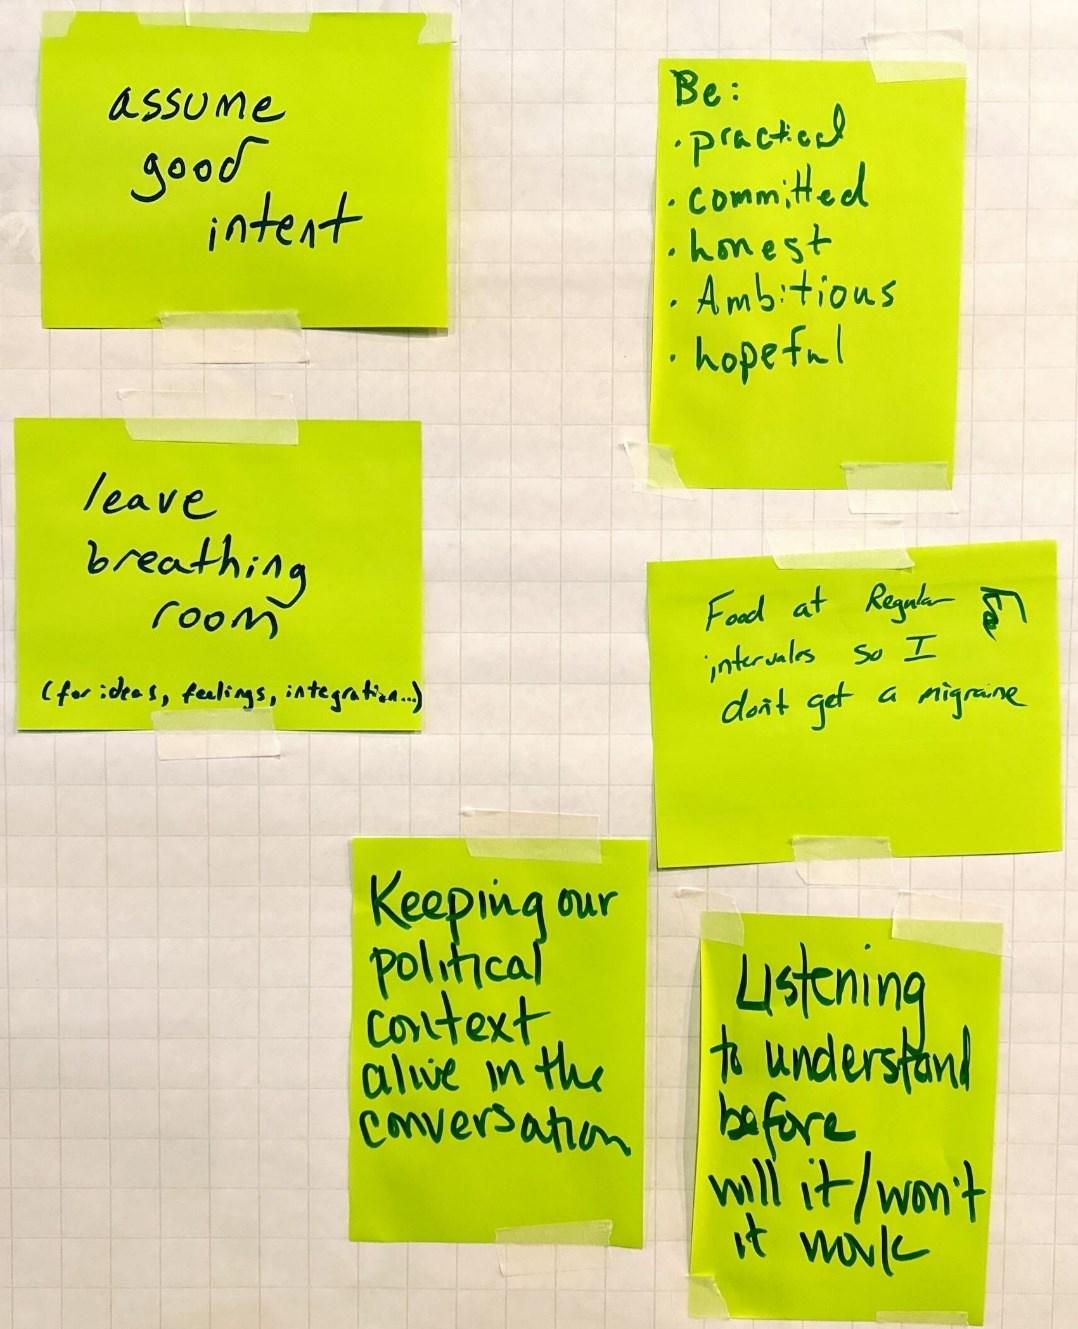 assume
good
intent
Be:
· practical
· committed
· honest
· Ambitious
· hopeful
leave
breathing
room
(for ideas, feelings, integration...)
Food at Regular
intervales so I
don't get a migraine
Keeping our
political
context
alive in the
conversation
Listening
to understand
before
will it/won't
it work